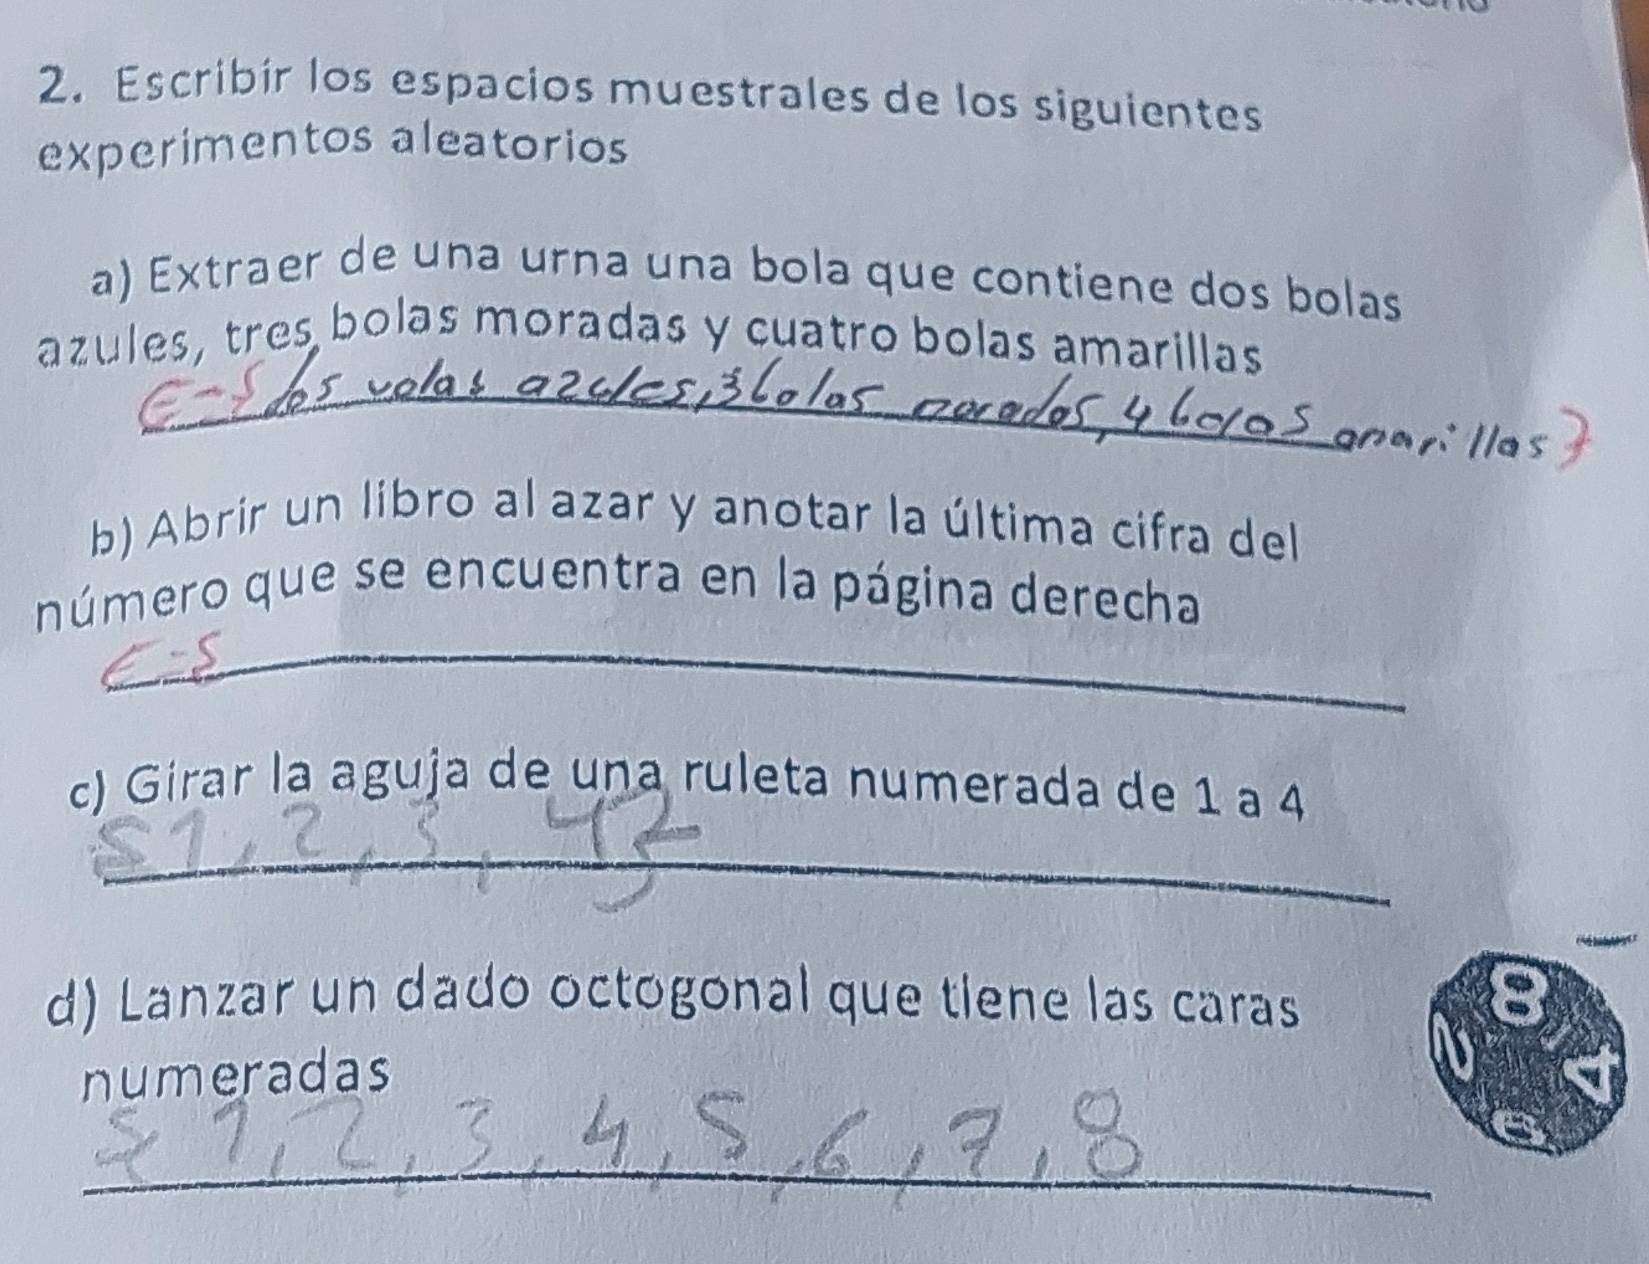 2. Escribir los espacios muestrales de los siguientes
experimentos aleatorios
a) Extraer de una urna una bola que contiene dos bolas
azules, tres bolas moradas y cuatro bolas amarillas
E={dos volas azules, 3 bolas moradas, 4 bolas amarillas}
b) Abrir un libro al azar y anotar la última cifra del
número que se encuentra en la página derecha
E={
c) Girar la aguja de una ruleta numerada de 1 a 4
{1, 2, 3, 4}
d) Lanzar un dado octogonal que tiene las caras
numeradas
{1, 2, 3, 4, 5, 6, 7, 8
8
2
4
6